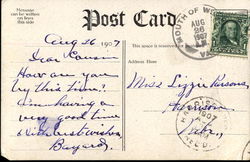 Message
can be written
on lines
this side
Post Card
Aug 26 1907
Dear Cousin
How are you
by this time?
am having a
very good time
with best wishes
Bayard.
This space is reserved for
Address Here
Miss Lizzie Parsons,
Va.,
MOUTH OF W
AUG
26
1907
VA
1907